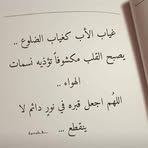 غياب الأب كغياب الضلوع ..
يصبح القلب مكشوفاً تؤذيه نسمات
الهواء ..
اللهُم اجعل قبره في نورٍ دائم لا
ينقطع ...